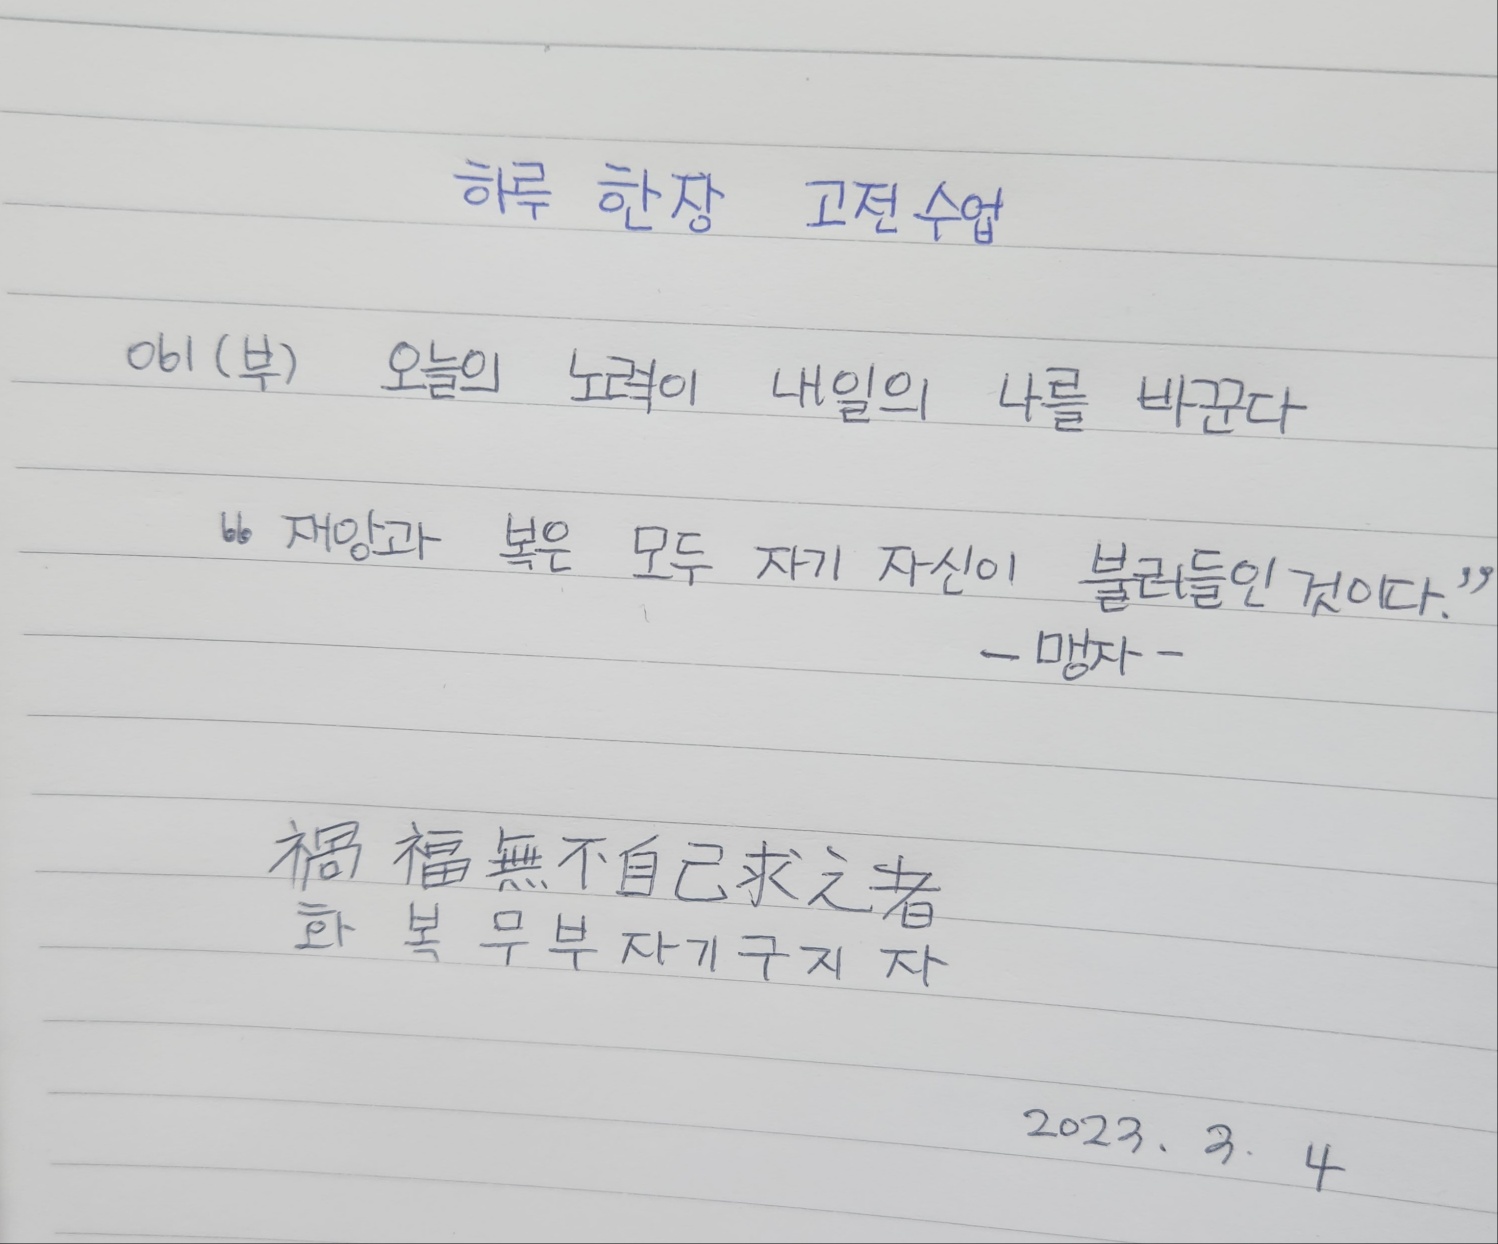 하루 한장 고전수업
061(부) 오늘의 노력이 내일의 나를 바꾼다
“재앙과 복은 모두 자기 자신이 불러들인 것이다.”
- 맹자 -
禍福無不自己求之者
화복무부자기구지자
2023. 3. 4